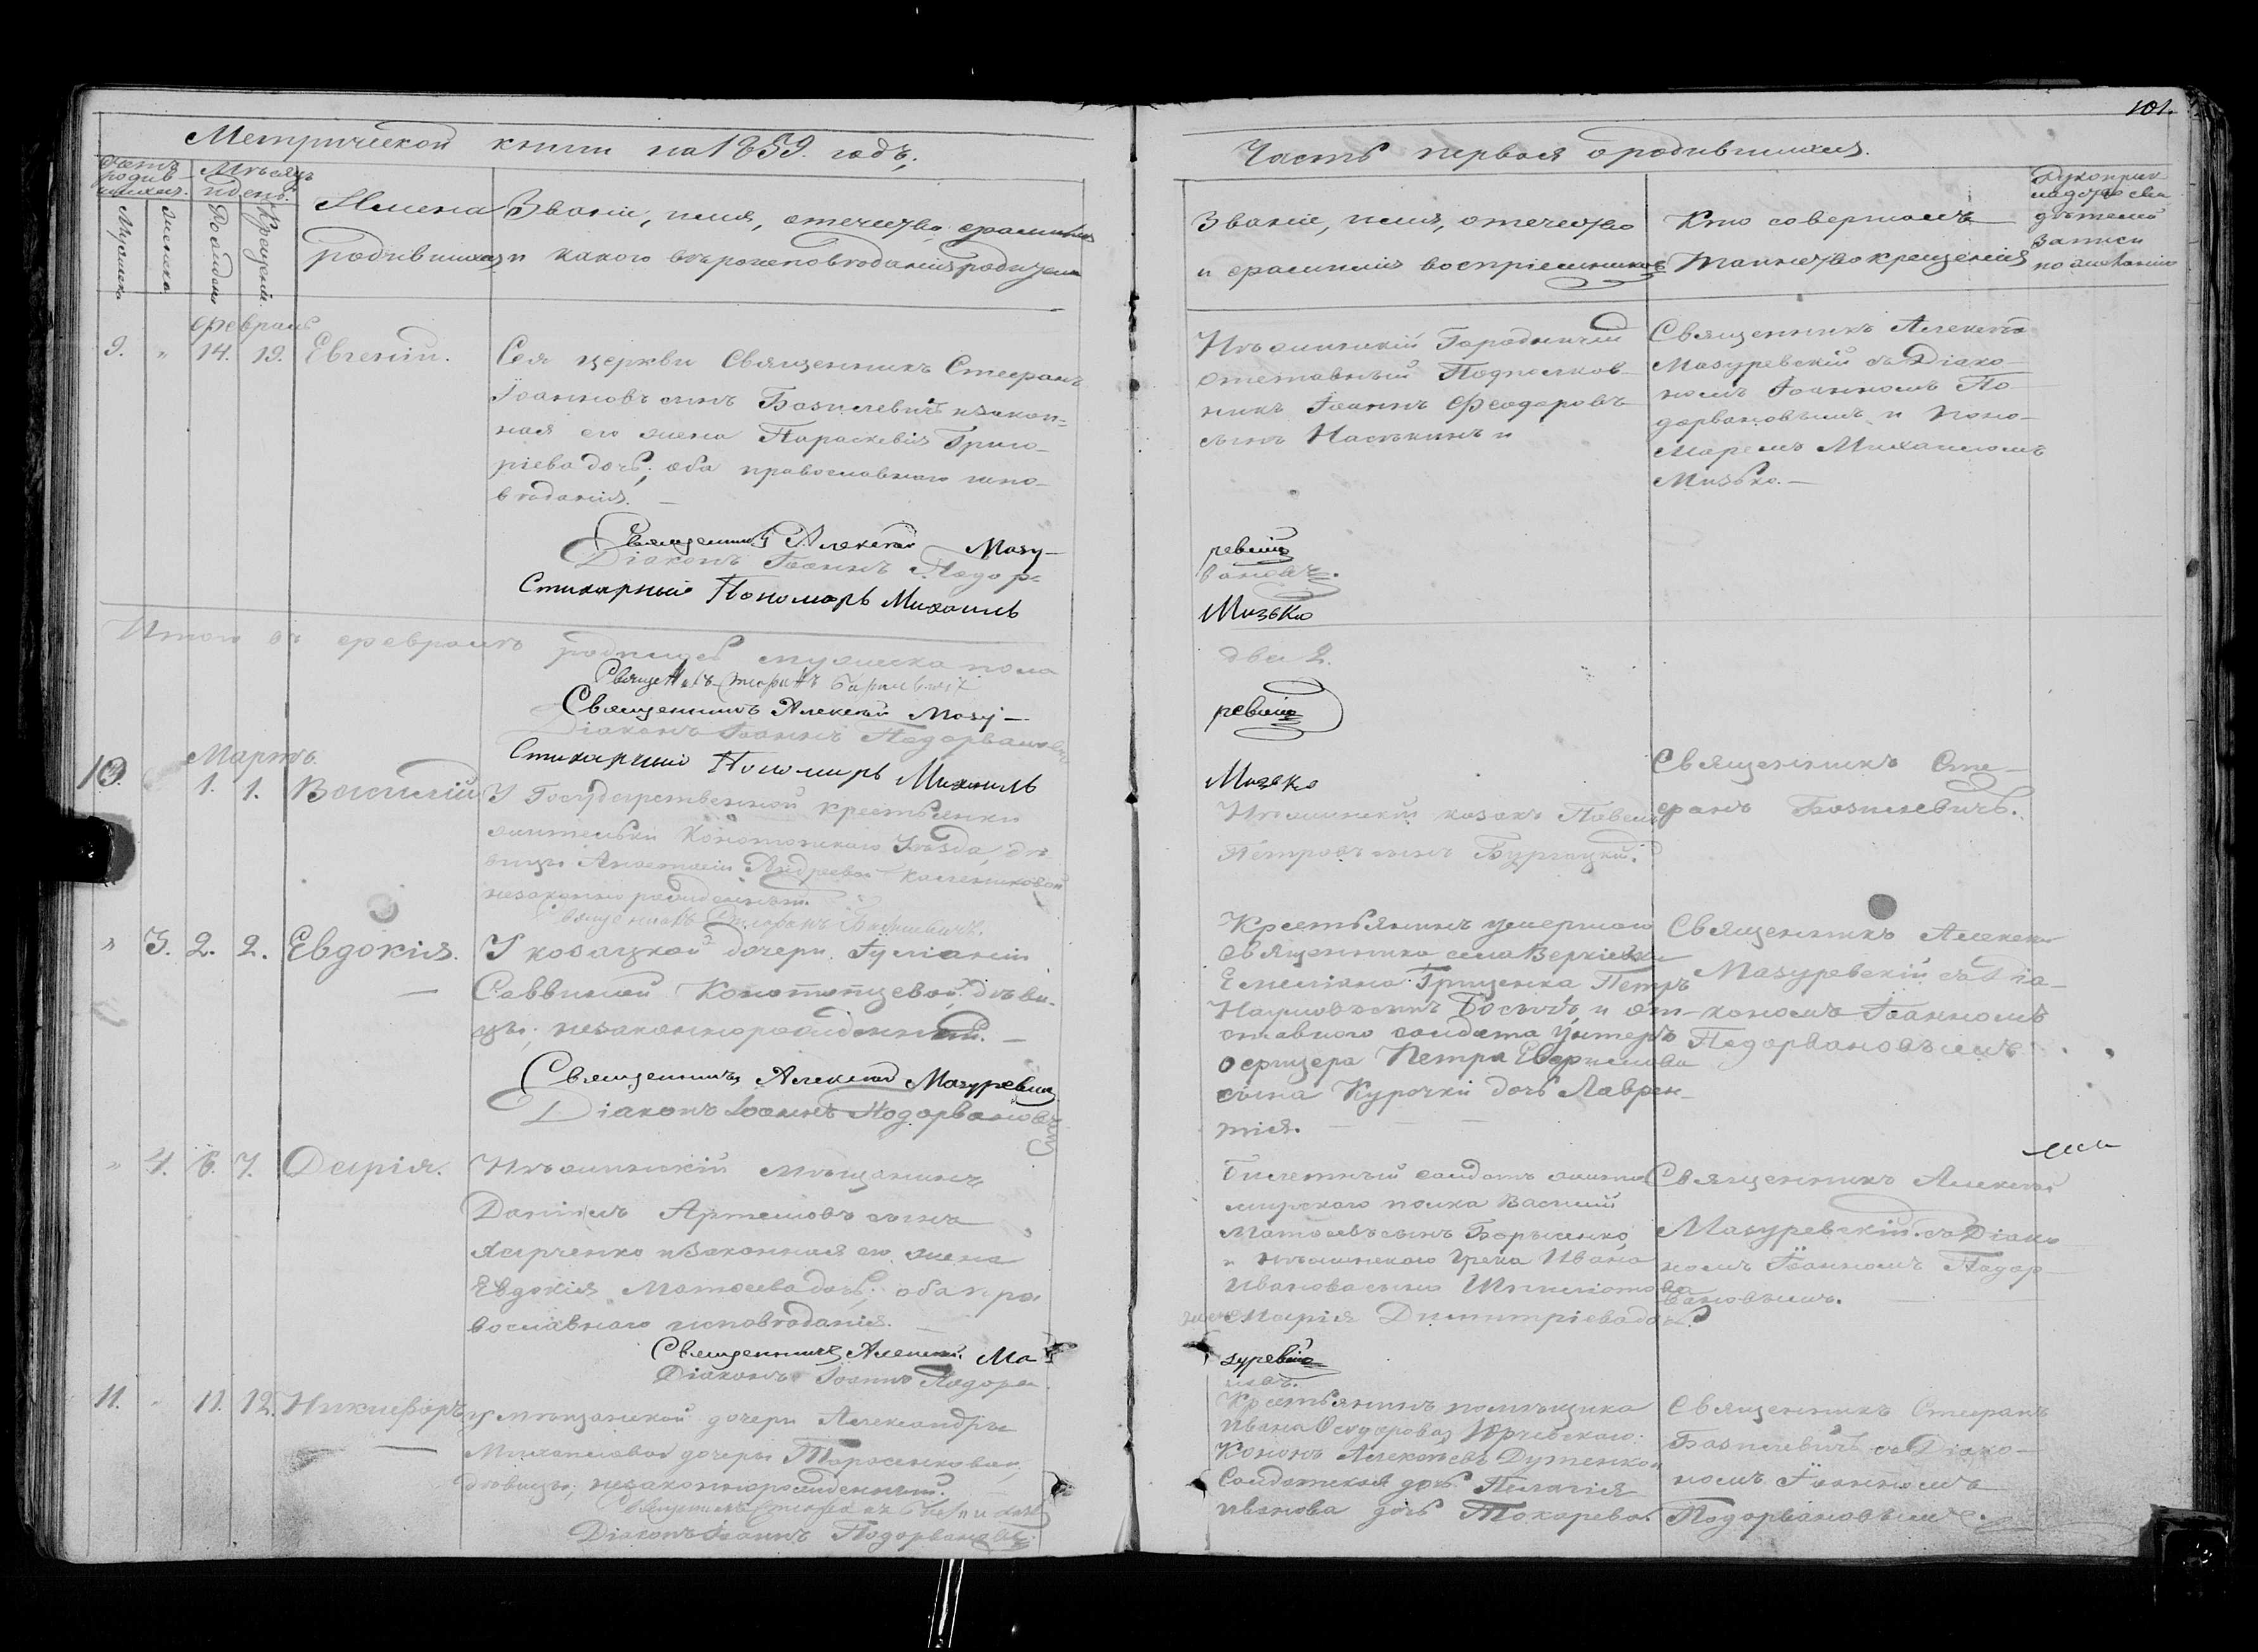 101.
Метрической книги на 1859. годъ,
Часть первая о родившихся.
Счетъ родив-шихся.
Мѣсяцъ и день.
Мужеска
Женска
Рожденія
Крещенія.
Имена родившихся
Званіе, имя, отечество, фамилія
и какого вѣроисповѣданія родители
Званіе, имя, отечество
и фамилія воспріемниковъ
Кто совершалъ
таинство крещенія
Рукопри-
кладство сви
дѣтелей
записи
по желанію
Февраль
9. " 14. 19. Евгеній.
Сея церкви Священникъ Стефанъ
Іоанновъ сынъ Базилевичъ и закон-
ная его жена Параскевія Григо-
ріева дочь; оба православнаго испо-
вѣданія. —
Нѣжинскій Городничій
отставный Подполков-
никъ Іоаннъ Феодоровъ
сынъ
Священникъ Алексѣй
Мазуревскій съ Діако-
номъ Іоанномъ По-
дорвановымъ и поно-
маремъ Михаиломъ
Мизько. —
Священникъ Алексѣй Мазу-
ревскій
Діаконъ Іоаннъ Подор-
вановъ.
Стихарный Пономарь Михаилъ
Мизько
Итого въ февралѣ родилось мужеска пола
два 2.
Священникъ Стефанъ Базилевичъ
Священникъ Алексѣй Мазу-
ревскій
Діаконъ Іоаннъ Подорвановъ
Стихарный Пономарь Михаилъ
Мизько
Мартъ.
10. 1. 1. Василій
У Государственной крестьянки
жительки Конотопскаго Уѣзда, дѣ-
вицы Анастасіи Андреевой
незаконнорожденный.
Священникъ Стефанъ Базилевичъ.
Нѣжинскій козакъ Павелъ
Петровъ сынъ
Священникъ Сте-
фанъ Базилевичъ.
" 3. 2. 2. Евдокія.
У козацкой дочери Іуліаніи
Саввиной Конотопцевой дѣви-
цы; незаконнорожденная. —
Священникъ Алексѣй Мазуревскій
Діаконъ Іоаннъ Подорвановъ
Крестьянинъ умершаго
священника села Веркіевки
Емеліана Гриценка Петръ
Наумовъ сынъ и от-
ставного солдата Унтеръ
офицера Петра
сына Курочки дочь Лаврен-
тія.
Священникъ Алексѣй
Мазуревскій съ Діа-
кономъ Іоанномъ
Подорвановымъ
" 4. 6. 7. Дарія.
Нѣжинскій мѣщанинъ
Даніилъ Артемовъ сынъ
и законная его жена
Евдокія Матвеева дочь; оба пра
вославнаго исповѣданія.
Священникъ Алексѣй Ма
зуревскій
Діаконъ Іоаннъ Подорва
новъ.
Билетный солдатъ
полка Василій
Матвеевъ сынъ
и нѣжинскаго Грека Ивана
Иванова сына
жена Марія Димитріева дочь
Священникъ Алексѣй
Мазуревскій съ Діако
номъ Іоанномъ Подор
вановымъ.
11. " 11. 12. Никифоръ
У мѣщанской дочери Александры
Михаиловой дочери Тарасенковой,
дѣвицы; незаконнорожденный.
Священникъ Стефанъ Базилевичъ
Діаконъ Іоаннъ Подорвановъ.
Крестьянинъ помѣщика
Ивана
Кононъ Алексѣевъ
Солдатская дочь Пелагія
Иванова дочь Токарева.
Священникъ Стефанъ
Базилевичъ съ Діако-
номъ Іоанномъ
Подорвановымъ.